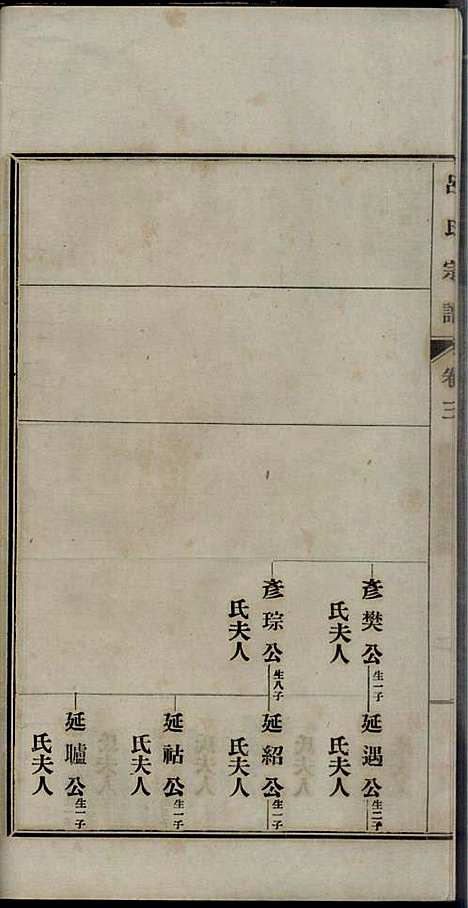 呂氏宗譜
卷三
彥樊公生一子
氏夫人
彥琮公生八子
氏夫人
延遇公生二子
氏夫人
延紹公生一子
氏夫人
延祜公生一子
氏夫人
延臚公生一子
氏夫人